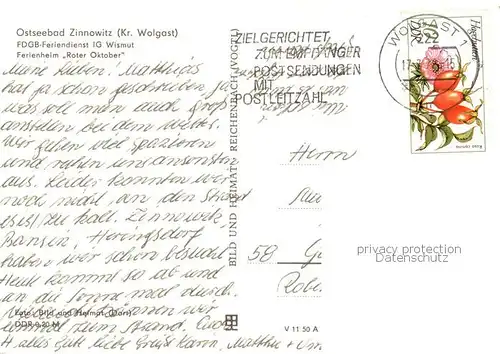 Ostseebad Zinnowitz (Kr. Wolgast)
FDGB-Feriendienst IG Wismut
Ferienheim „Roter Oktober"
Meine Lieben! Matthias
hat ja schon geschrieben, ja
was soll man auch groß
anstellen bei dem Wetter.
Wir gehen viel spazieren
und ruhen uns ansonsten
aus. Leider konnten wir
noch nicht an den Strand
es ist zu kalt. Zinnowitz,
Bansin, Heringsdorf
haben wir schon besucht
Heute kommt so ab und
an die Sonne mal durch.
können wir
zum Strand.
alles Gute liebe Grüße Karin, Matthias
Foto: Bild und Heimat
DDR 0,20 M
BILD UND HEIMAT REICHENBACH (VOGTL)
V 11 50 A
ZIELGERICHTET
ZUM EMPFÄNGER
POSTSENDUNGEN
MIT
POSTLEITZAHL
WOLGAST 1
2220
DDR
Herrn
privacy protection
Datenschutz